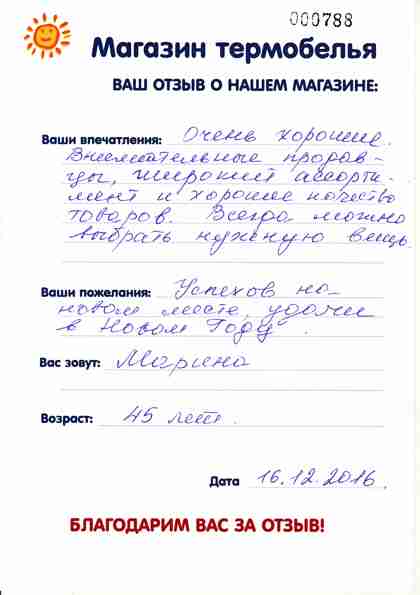 000788
Магазин термобелья
ВАШ ОТЗЫВ О НАШЕМ МАГАЗИНЕ:
Ваши впечатления: Очень хорошие.
Внимательные продав-
цы, широкий ассорти-
мент и хорошее качество
товаров. Всегда можно
выбрать нужную вещь.
Ваши пожелания: Успехов на
новом месте, удачи
в Новом Году.
Вас зовут: Марина
Возраст: 45 лет.
Дата 16.12.2016.
БЛАГОДАРИМ ВАС ЗА ОТЗЫВ!